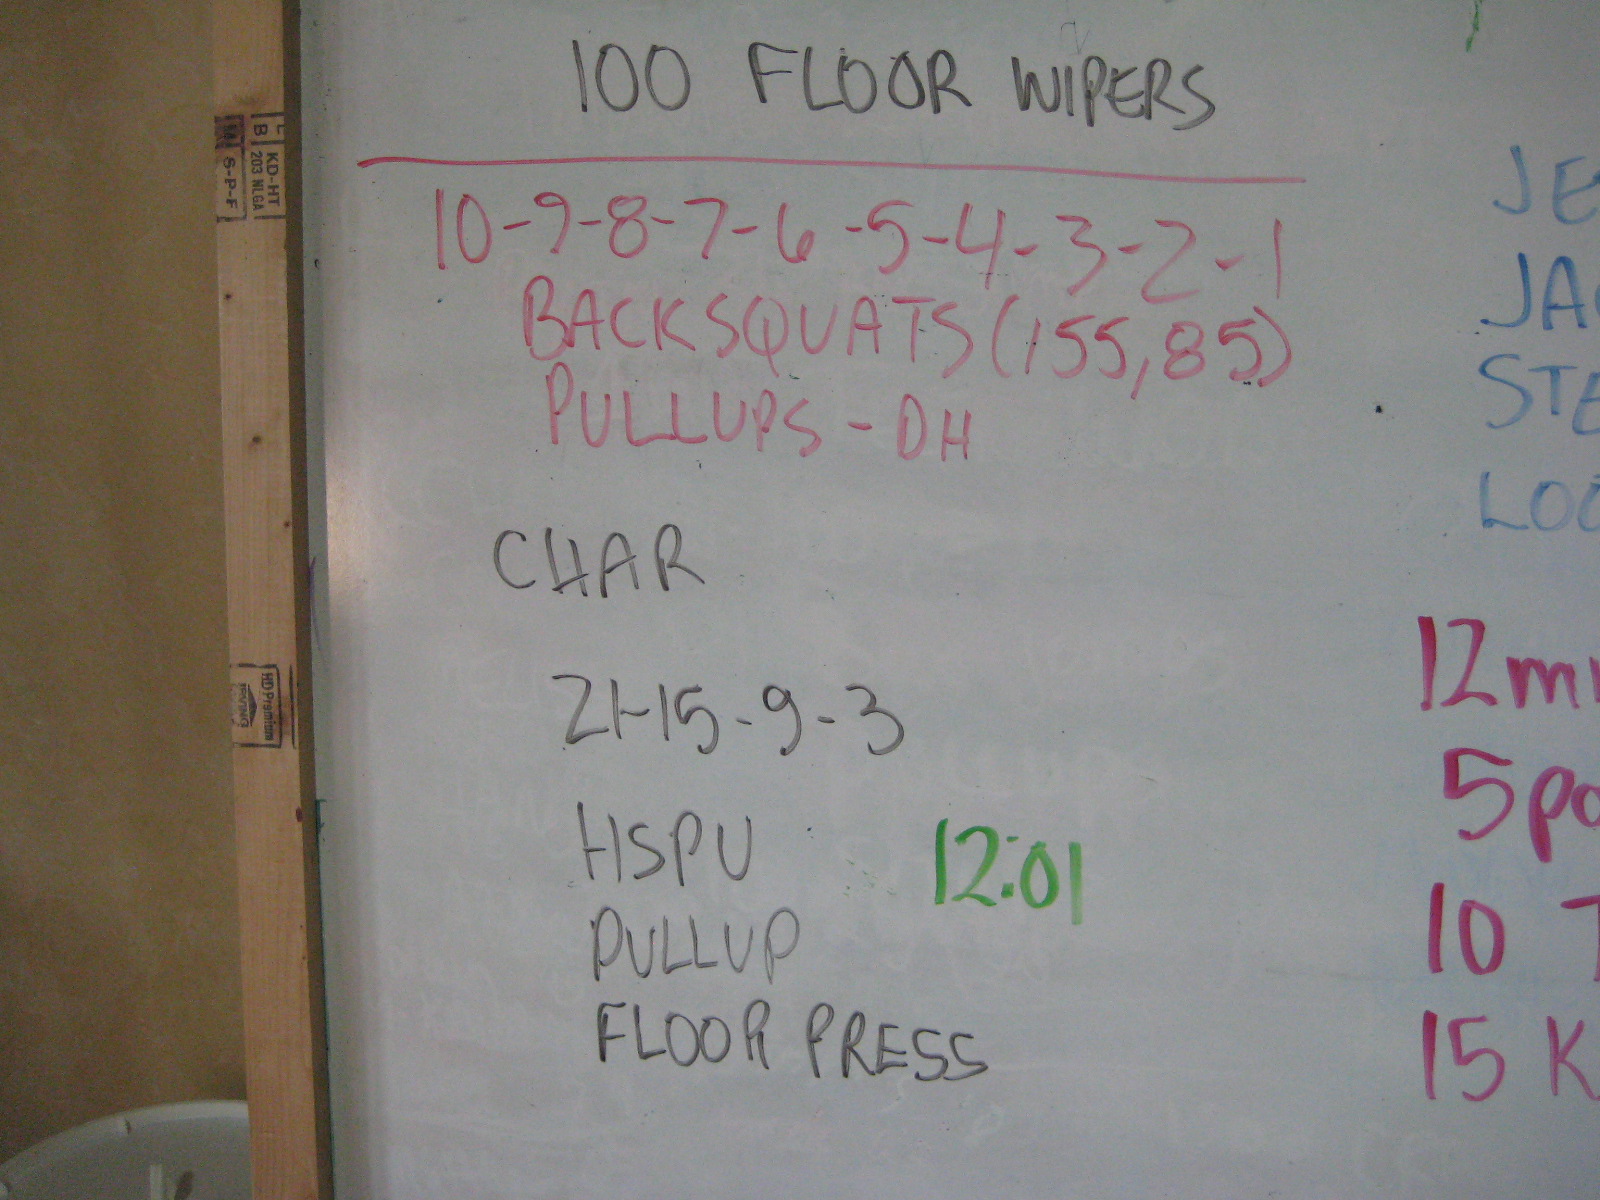 100 FLOOR WIPERS
10-9-8-7-6-5-4-3-2-1
BACKSQUATS (155,85)
PULLUPS - DH
CHAR
21-15-9-3
HSPU
12:01
PULLUP
FLOOR PRESS
JE
JAC
STE
LOO
12mi
5po
10 T
15 K
KD-HT
203 NLGA
S-P-F
HD Premium
IRVING